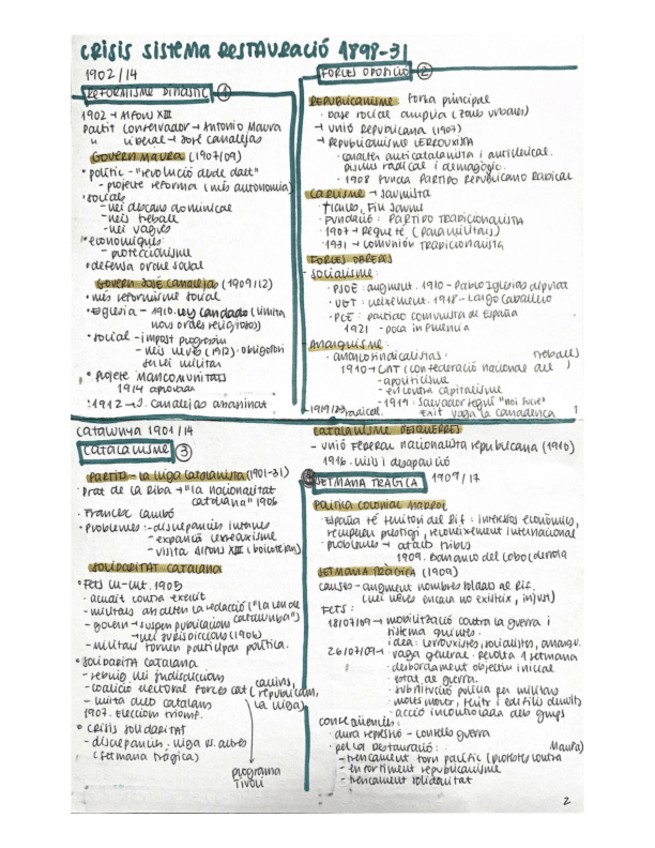 CRISIS SISTEMA RESTAURACIÓ 1898-31
1902/14
REFORMISME DINÀSTIC 1
1902 → Alfons XIII
Partit Conservador → Antonio Maura
" Liberal → José Canalejas
GOVERN MAURA (1907/09)
• polític - "revolució desde dalt"
- projecte reforma (més autonomia)
• socials
- llei descans dominical
- lleis treball
- llei vagues
• econòmiques:
- proteccionisme
• defensa ordre social
GOVERN JOSÉ CANALEJAS (1909/12)
• més reformisme social
• Església - 1910. ley candado (limita
nous ordres religiosos)
• social - impost progressiu
- llei lleves (1912): obligatori
servei militar
• Projecte MANCOMUNITATS
1914 aprovada
1912 → J. Canalejas assassinat
FORCES OPOSICIÓ 2
REPUBLICANISME forca principal
• base social àmplia (zones urbanes)
→ Unió Republicana (1903)
→ Republicanisme LERROUXISTA
• caràcter anticatalanista i anticlerical.
discurs radical i demagògic.
• 1908 funda PARTIDO REPUBLICANO RADICAL
CARLISME → Jaumista
• Carles, fill Jaume
• Fundació: PARTIDO TRADICIONALISTA
• 1907 → Requeté (paramilitars)
• 1931 → COMUNIÓN TRADICIONALISTA
FORCES OBRERES
- Socialisme:
• PSOE: augment. 1910 - Pablo Iglesias diputat
• UGT: creixement. 1918 - Largo Caballero
• PCE: partido comunista de España
1921 - poca influencia
- Anarquisme:
• anarcosindicalistas.
1910 → CNT (confederació nacional del treball)
- apoliticisme
- en contra capitalisme
- 1919: Salvador Seguí "noi sucre"
- 1919/23 radical. Èxit vaga la canadenca 1
Catalunya 1901/14
CATALANISME 3
PARTITS - la lliga catalanista (1901-31)
• Prat de la Riba → "la nacionalitat
catalana" 1906
• Francesc Cambó
• Problemes: - discrepàncies internes
- expansió lerrouxisme
- visita Alfons XIII (boicotejan)
SOLIDARITAT CATALANA
• Fets cu-cut. 1905
- acudit contra exèrcit
- militars assalten la redacció ("la veu de
catalunya")
- govern → suspèn publicacions
→ llei jurisdiccions (1906)
- militars tornen participar política.
• Solidarita catalana
- rebuig llei jurisdiccions
- coalició electoral forces cat (carlins,
republicam,
la lliga)
- lluita drets catalans
1907. Eleccions triomf.
• Crisis solidaritat
- discrepàncies: lliga vs. altres
(setmana tràgica)
programa
Tívoli
CATALANISME D'ESQUERRES
- Unió Federal nacionalista republicana (1910)
1916. crisis i desaparició
4 SETMANA TRÀGICA 1909/17
POLÍTICA COLONIAL MARROC
• España té territori del Rif: interessos econòmics,
recuperen prestigi, reconeixement internacional
• problemes → atacs tribus
1909. Barranco del Lobo (derrota
SETMANA TRÀGICA (1909)
causes - augment nombres soldats al Rif.
(llei lleves encara no existeix, injust)
FETS:
18/07/09 → mobilització contra la guerra i
sistema quintes.
idea: lerrouxistes, socialistes, anarqu.
26/07/09 → vaga general. Revolta 1 setmana
• desbordament objectiu inicial
• estat de guerra.
• substitució policia per militars
• molts morts, ferits i edificis destruïts
• acció incontrolada dels grups
conseqüències:
• dura repressió - consells guerra
• pel la Restauració:
- trencament torn pacífic (protestes contra Maura)
- enfortiment republicanisme
- trencament solidaritat
2